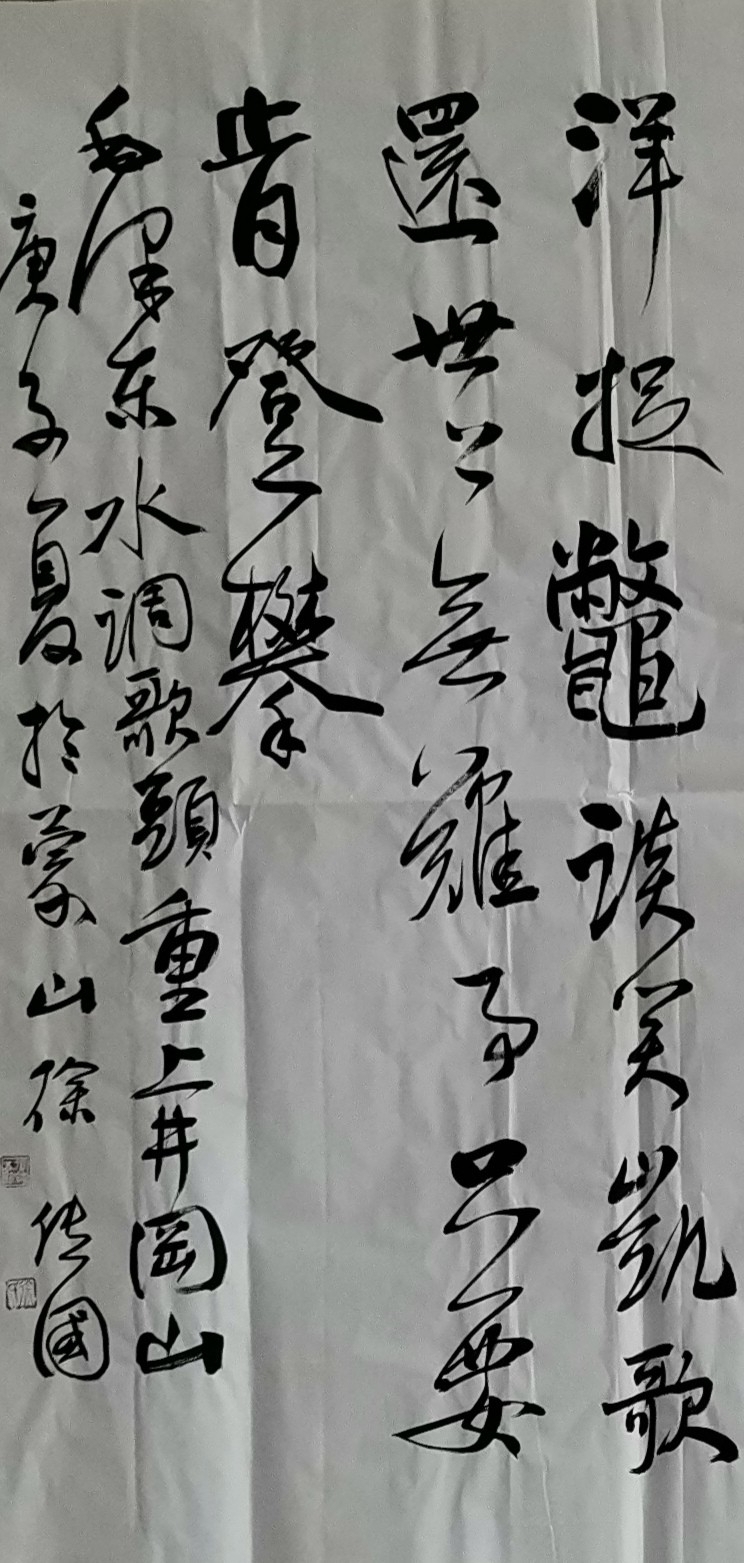 洋捉鼈談笑凱歌
還世上無難事只要
肯登攀
毛澤东水调歌頭重上井岡山
庚子夏於蒙山徐傳國